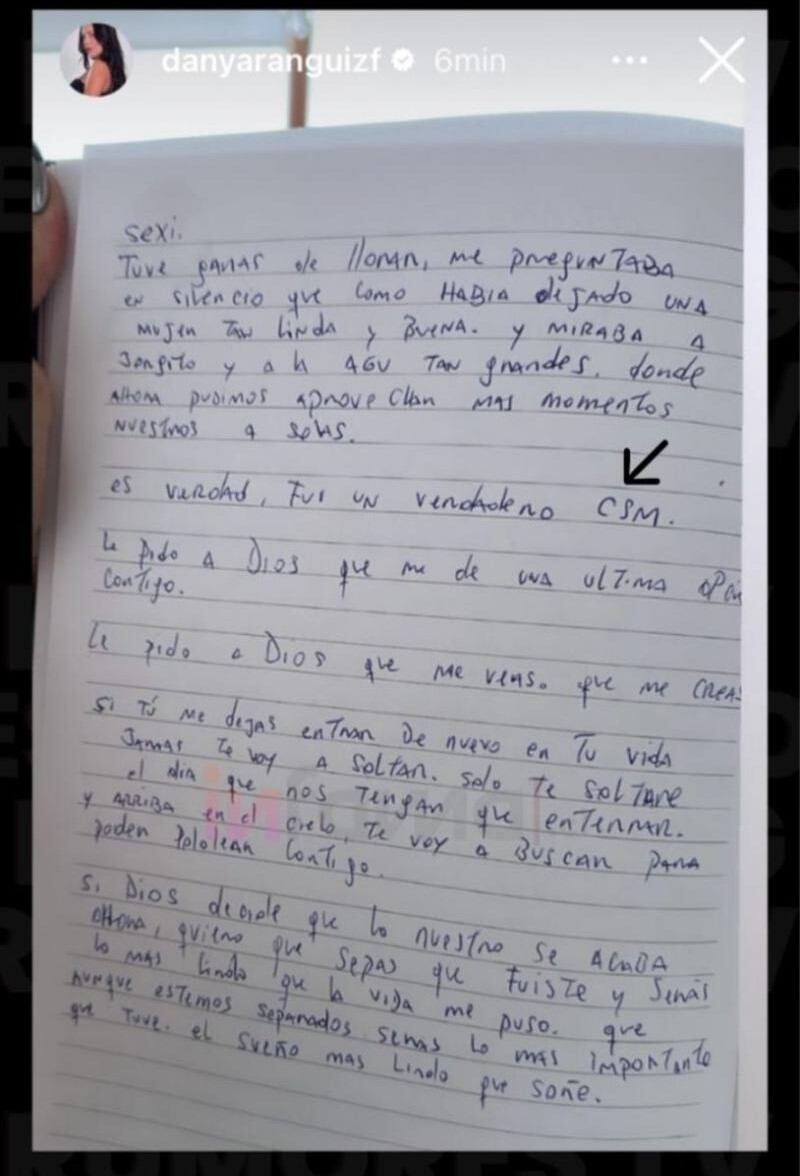 danyaranguizf 6min
sexi.
Tuve ganas de llorar, me preguntaba
en silencio que como HABIA dejado UNA
mujer TAN linda y BUENA. y MIRABA A
Jorgito y a la AGU TAN grandes. donde
AHORA pudimos aprovechar mas momentos
nuestros a solas.
es verdad, Fui UN verdadero CSM.
Le pido A DIOS que me de una ultima
contigo.
Le pido a DIOS que me veas. que me CREAS
si TÚ me dejas entrar De nuevo en Tu vida
JAMAS Te voy A SOLTAR. solo Te SOLTARE
el dia que nos TENGAN que enTERRAR.
y ARRIBA en el cielo, Te voy a BUSCAR PARA
poder pololear conTigo.
si DIOS decide que lo nuestro se ACABA
AHORA, quiero que sepas que FuisTe y Seras
lo mas lindo que la vida me puso. que
Aunque esTemos separados seras lo mas importante
que Tuve. el sueño mas lindo que soñe.